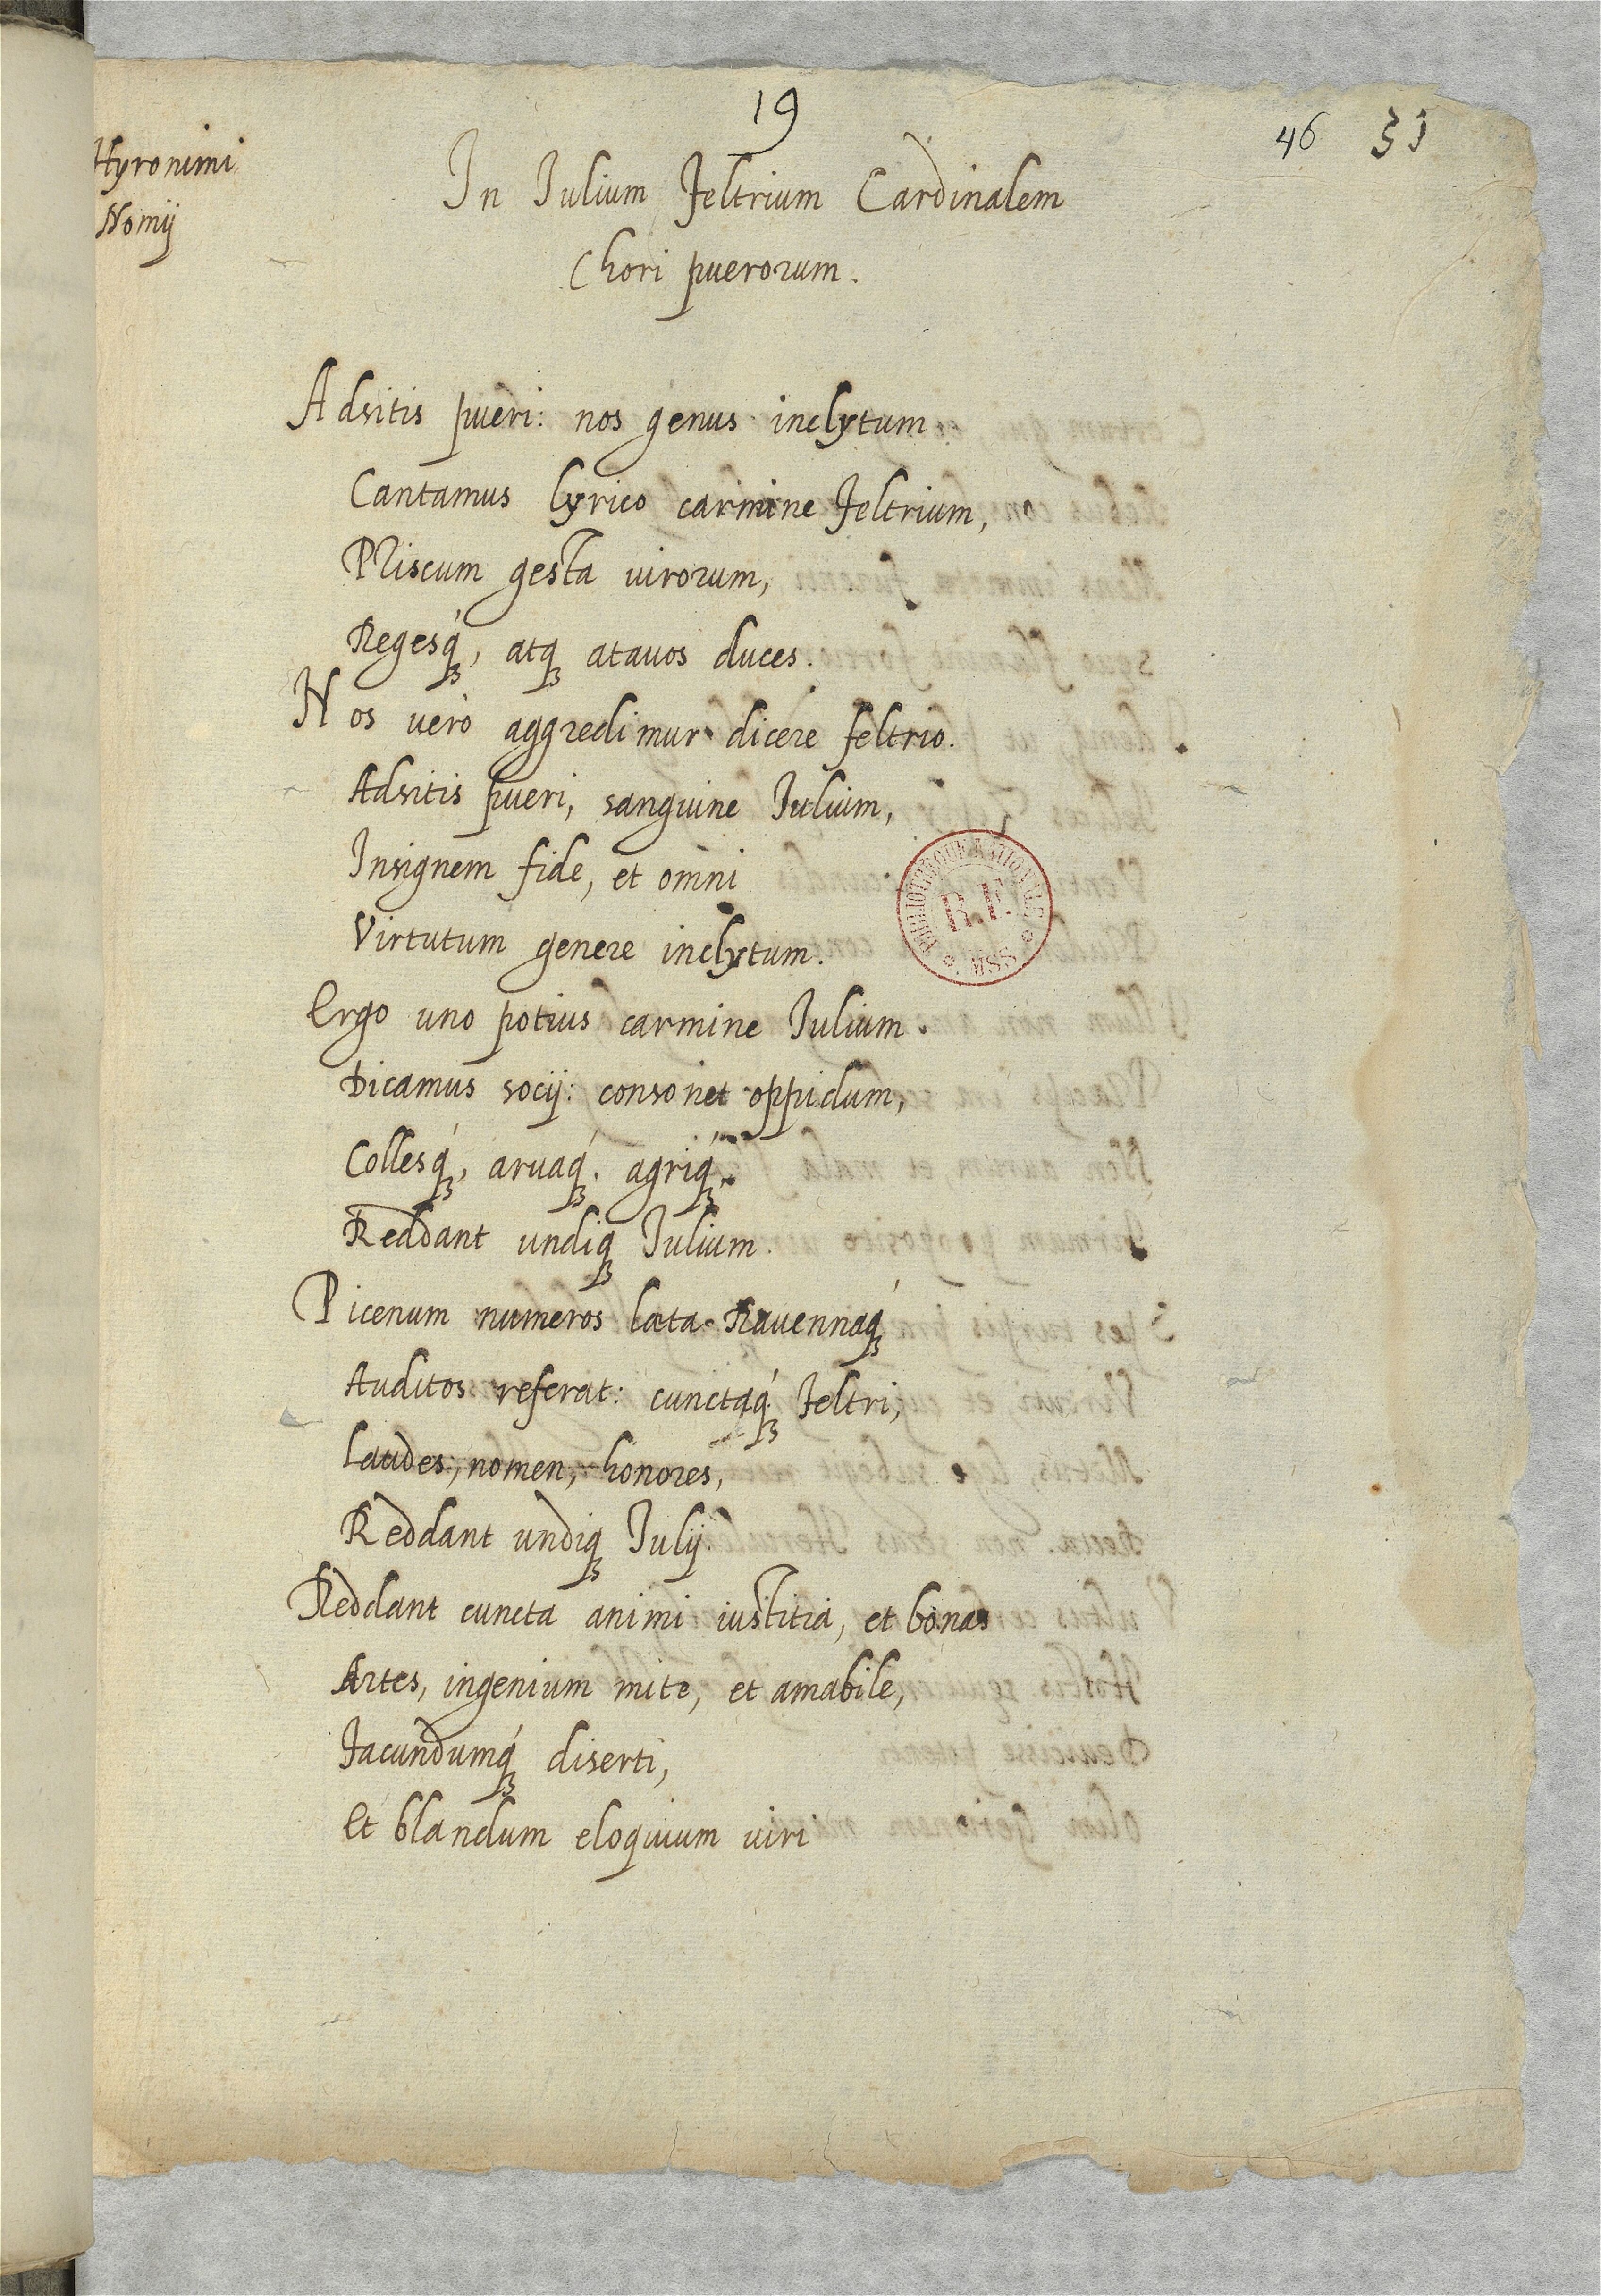 19
46 51
Hyronimi
Nomij
In Iulium Feltrium Cardinalem
Chori puerorum.
Adsitis pueri: nos genus inclytum
Cantamus lyrico carmine Feltrium,
Priscum gesta uirorum,
Regesq́, atq atauos duces.
Nos uerò aggredimur dicere feltrio.
Adsitis pueri, sanguine Iulium,
Insignem fide, et omni
Virtutum genere inclytum.
Ergo uno potius carmine Iulium.
Dicamus socij: consonet oppidum,
Collesq́, aruaq́. agriq́.
Reddant undiq Iulium.
Picenum numeros lata Rauennaq́
Auditos referat: cunctaq́ Feltri,
Laudes, nomen, honores,
Reddant undiq Iulij.
Reddant cuncta animi iustitia, et bonas
Artes, ingenium mite, et amabile,
Facundumq́ diserti,
Et blandum eloquium uiri
BIBLIOTHEQUE NATIONALE
R.F.
MSS